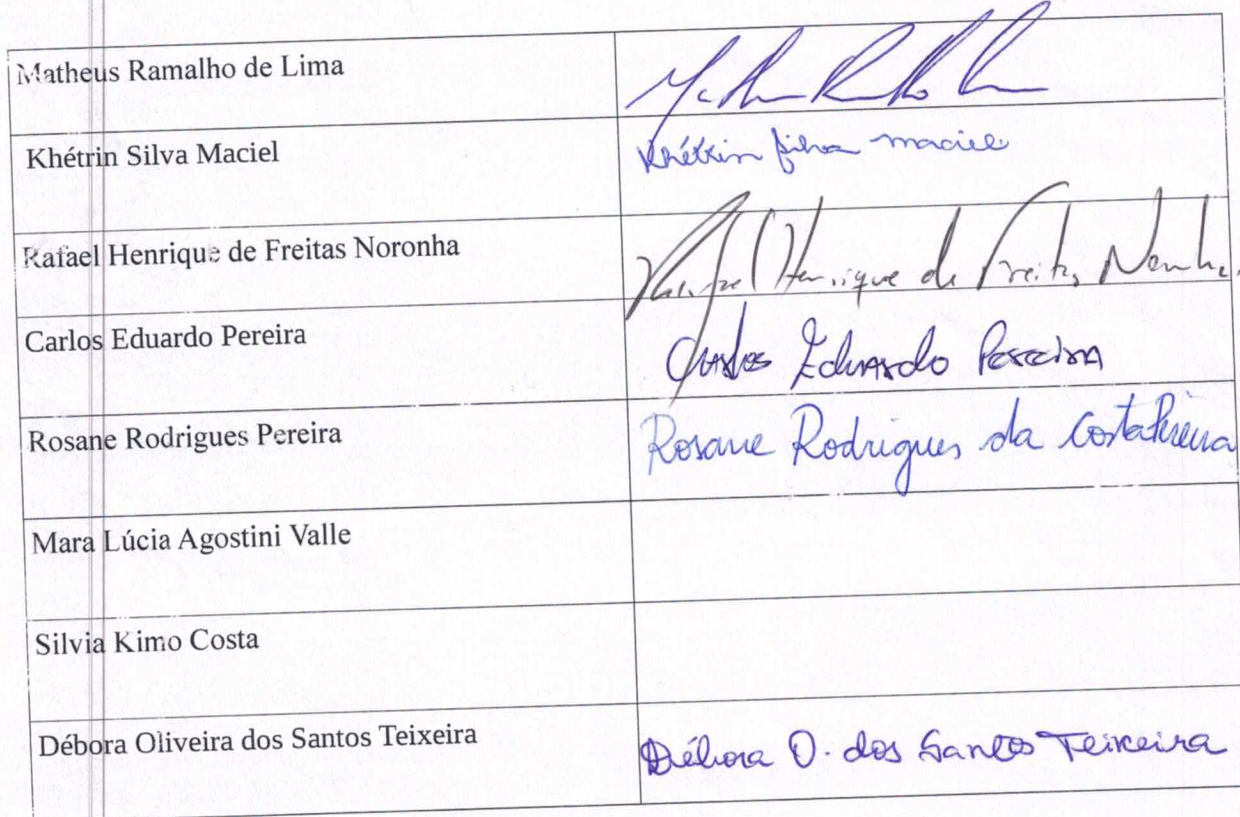 Matheus Ramalho de Lima
Khétrin Silva Maciel Khétrin Silva maciel
Rafael Henrique de Freitas Noronha Rafael Henrique de Freitas Noronha
Carlos Eduardo Pereira Carlos Eduardo Pereira
Rosane Rodrigues Pereira Rosane Rodrigues da Costa Pereira
Mara Lúcia Agostini Valle
Silvia Kimo Costa
Débora Oliveira dos Santos Teixeira Débora O. dos Santos Teixeira